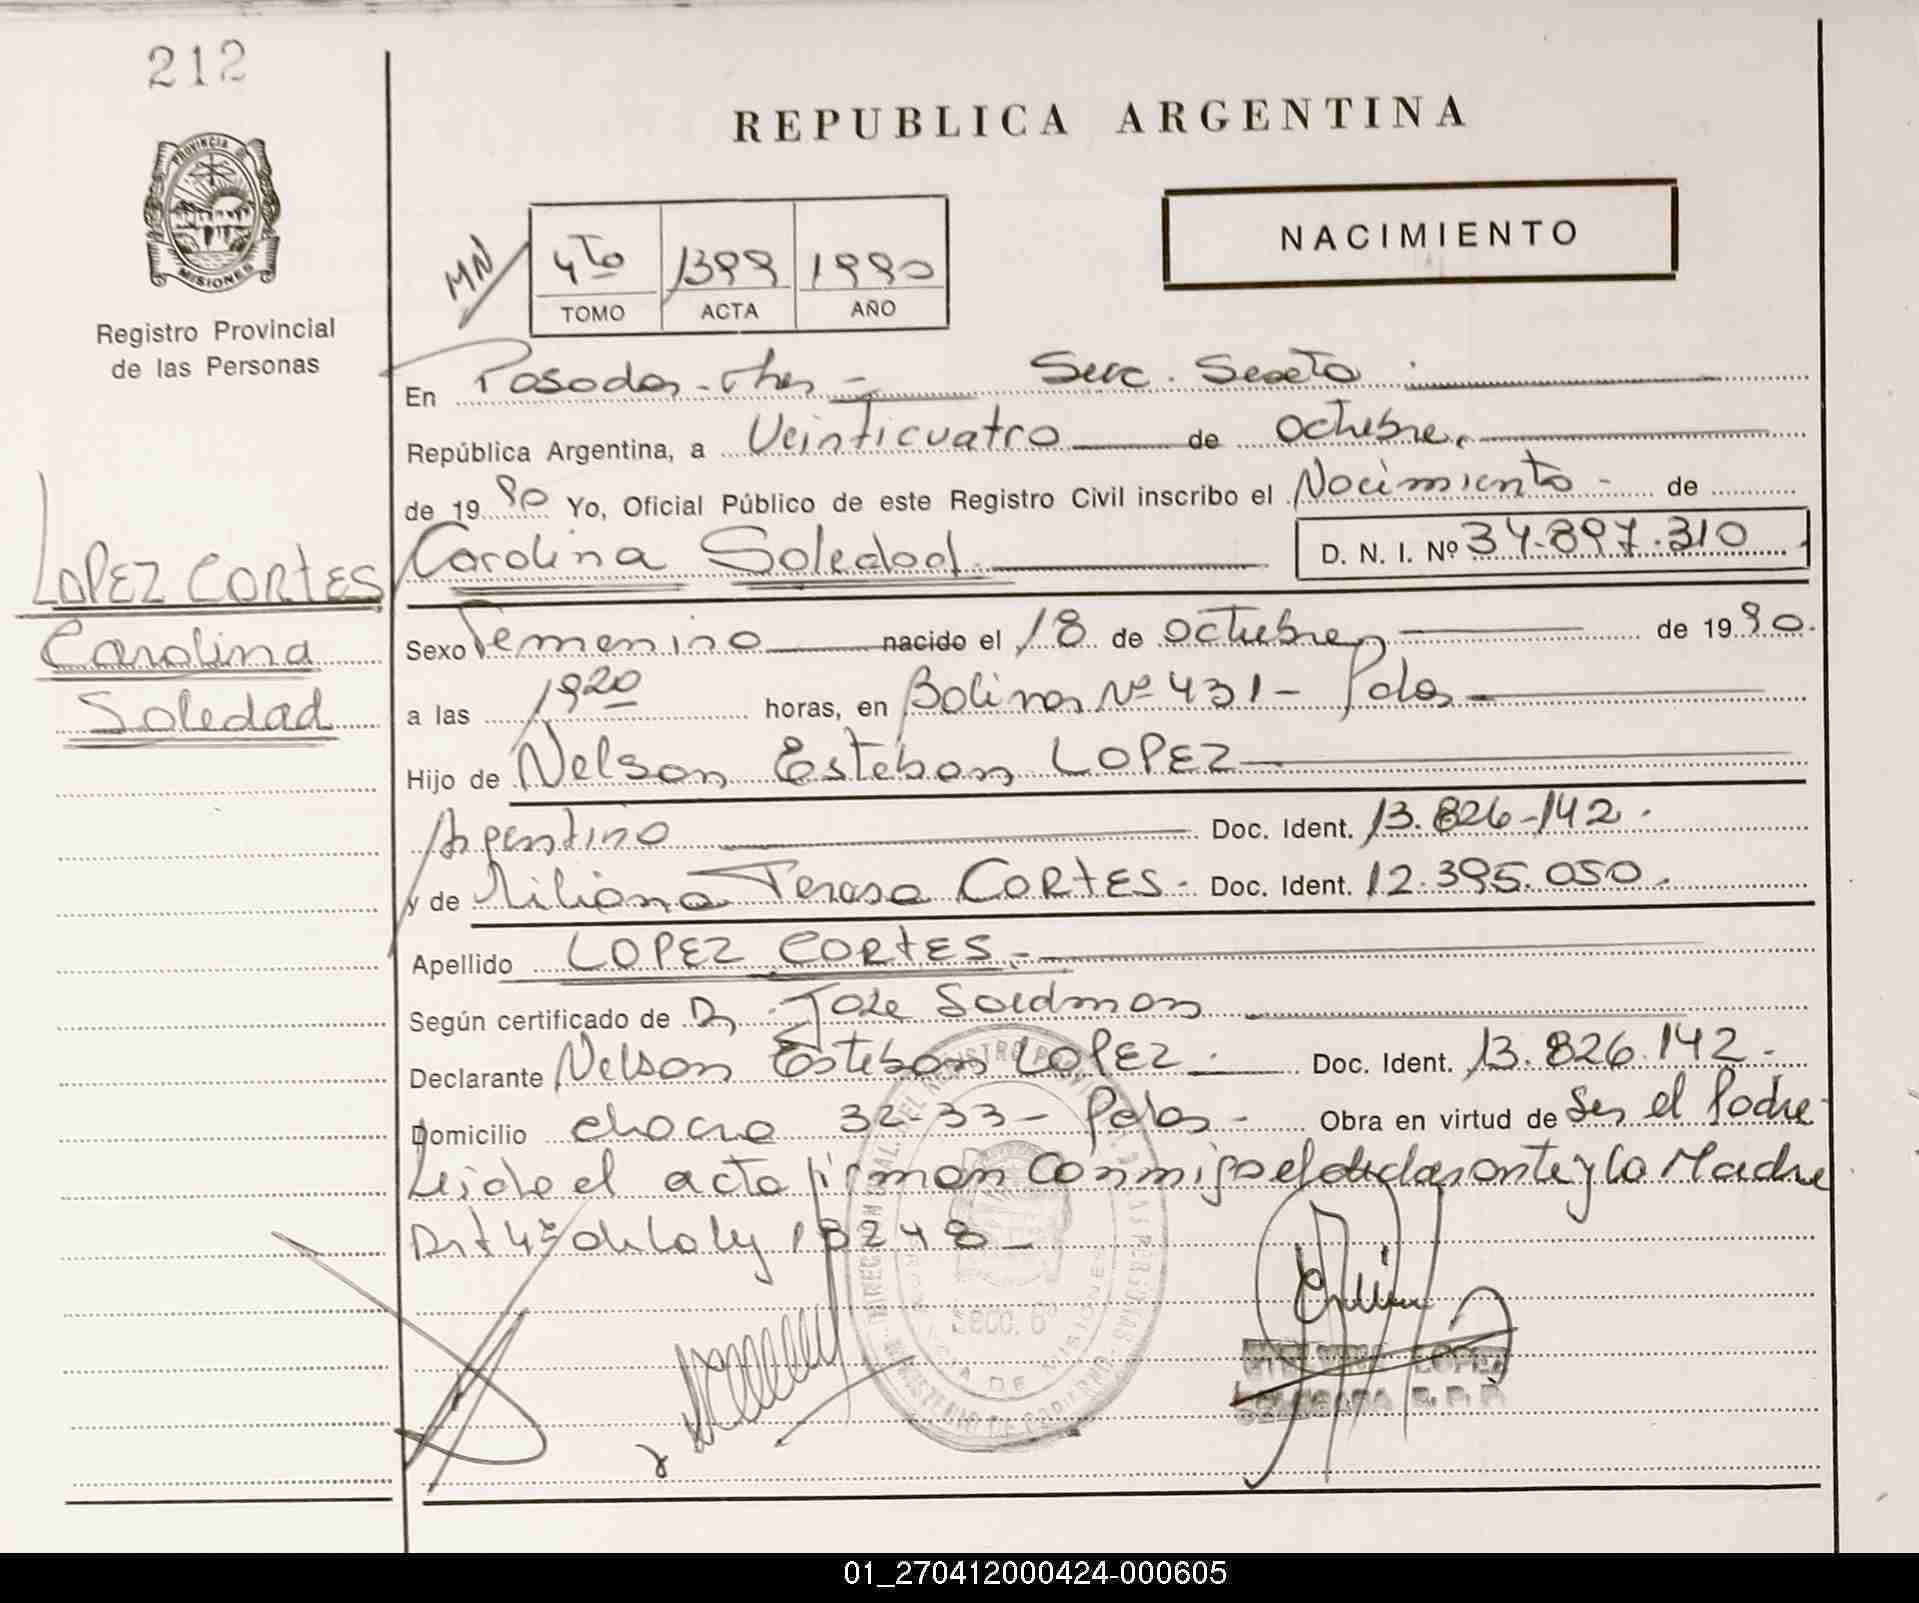 212
PROVINCIA DE
MISIONES
Registro Provincial
de las Personas
LOPEZ CORTES
Carolina
Soledad
REPUBLICA ARGENTINA
NACIMIENTO
MN
4to 1399 1990
TOMO ACTA AÑO
En Posadas - Secc. Sexta
República Argentina, a Veinticuatro de Octubre
de 1990 Yo, Oficial Público de este Registro Civil inscribo el Nacimiento - de
Carolina Soledad D. N. I. Nº 34.897.310
Sexo Femenino nacido el 18 de Octubre de 1990.
a las 1920 horas, en Bolivar Nº 431 - Pdas
Hijo de Nelson Esteban LOPEZ
Argentino Doc. Ident. 13.826.142.
y de Liliana Teresa CORTES - Doc. Ident. 12.395.050.
Apellido LOPEZ CORTES.-
Según certificado de Dr Jose
Declarante Nelson Esteban LOPEZ. Doc. Ident. 13.826.142.-
Domicilio chacra 32-33 - Pdas - Obra en virtud de Ser el Padre
Leida el acta firman conmigo el declarante y la Madre
Art 4º de la ley 18248 -
Secc. 6º
LOPEZ
R. P. P.
01_270412000424-000605